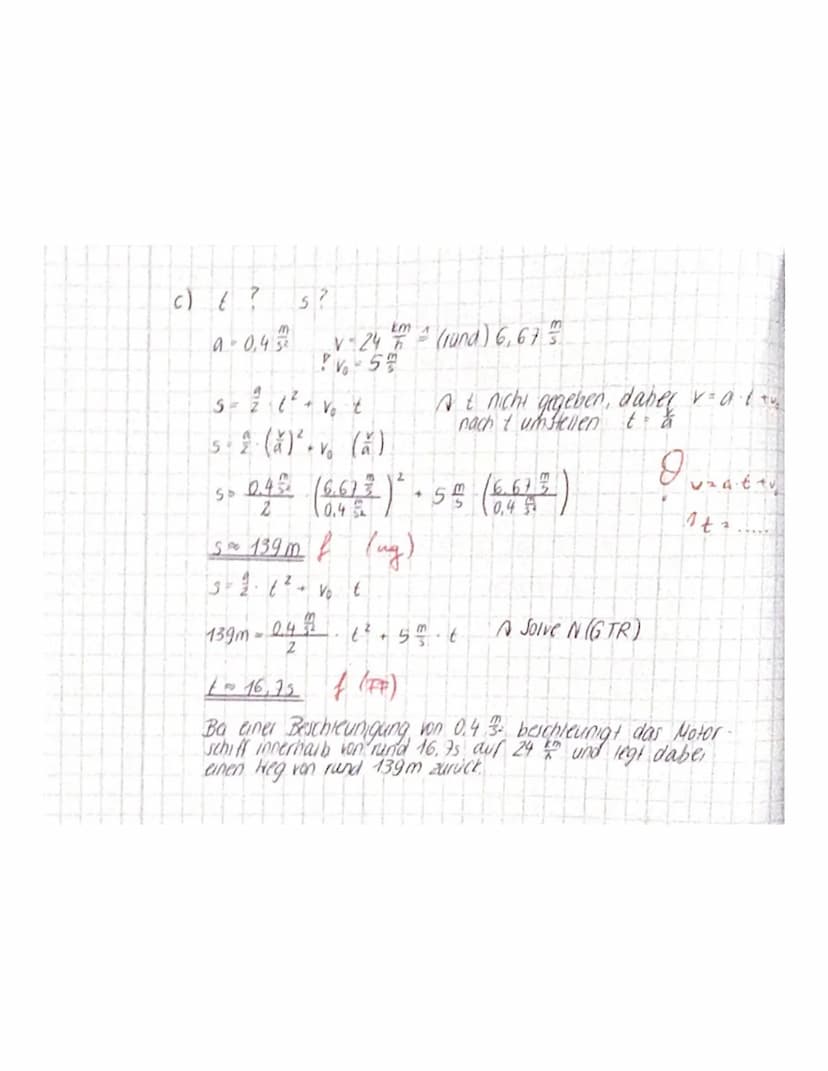 c) t ? s ?
a = 0,4 m/s² v = 24 km/h ≙ (rund) 6,67 m/s
! v₀ = 5 m/s
s = a/2 · t² + v₀ · t → t nicht gegeben, daher v = a · t + v₀
nach t umstellen t = v/a
s = a/2 · (v/a)² + v₀ · (v/a)
s = 0,4 m/s² / 2 · (6,67 m/s / 0,4 m/s²)² + 5 m/s · (6,67 m/s / 0,4 m/s²)
v = a · t + v₀
t = .....
s ≈ 139 m f
s = a/2 · t² + v₀ · t
139m = 0,4 m/s² / 2 · t² + 5 m/s · t → Solve N (GTR)
t ≈ 16,7s f
Bei einer Beschleunigung von 0,4 m/s² beschleunigt das Motor-
schiff innerhalb von rund 16,7s auf 24 km/h und legt dabei
einen Weg von rund 139m zurück.